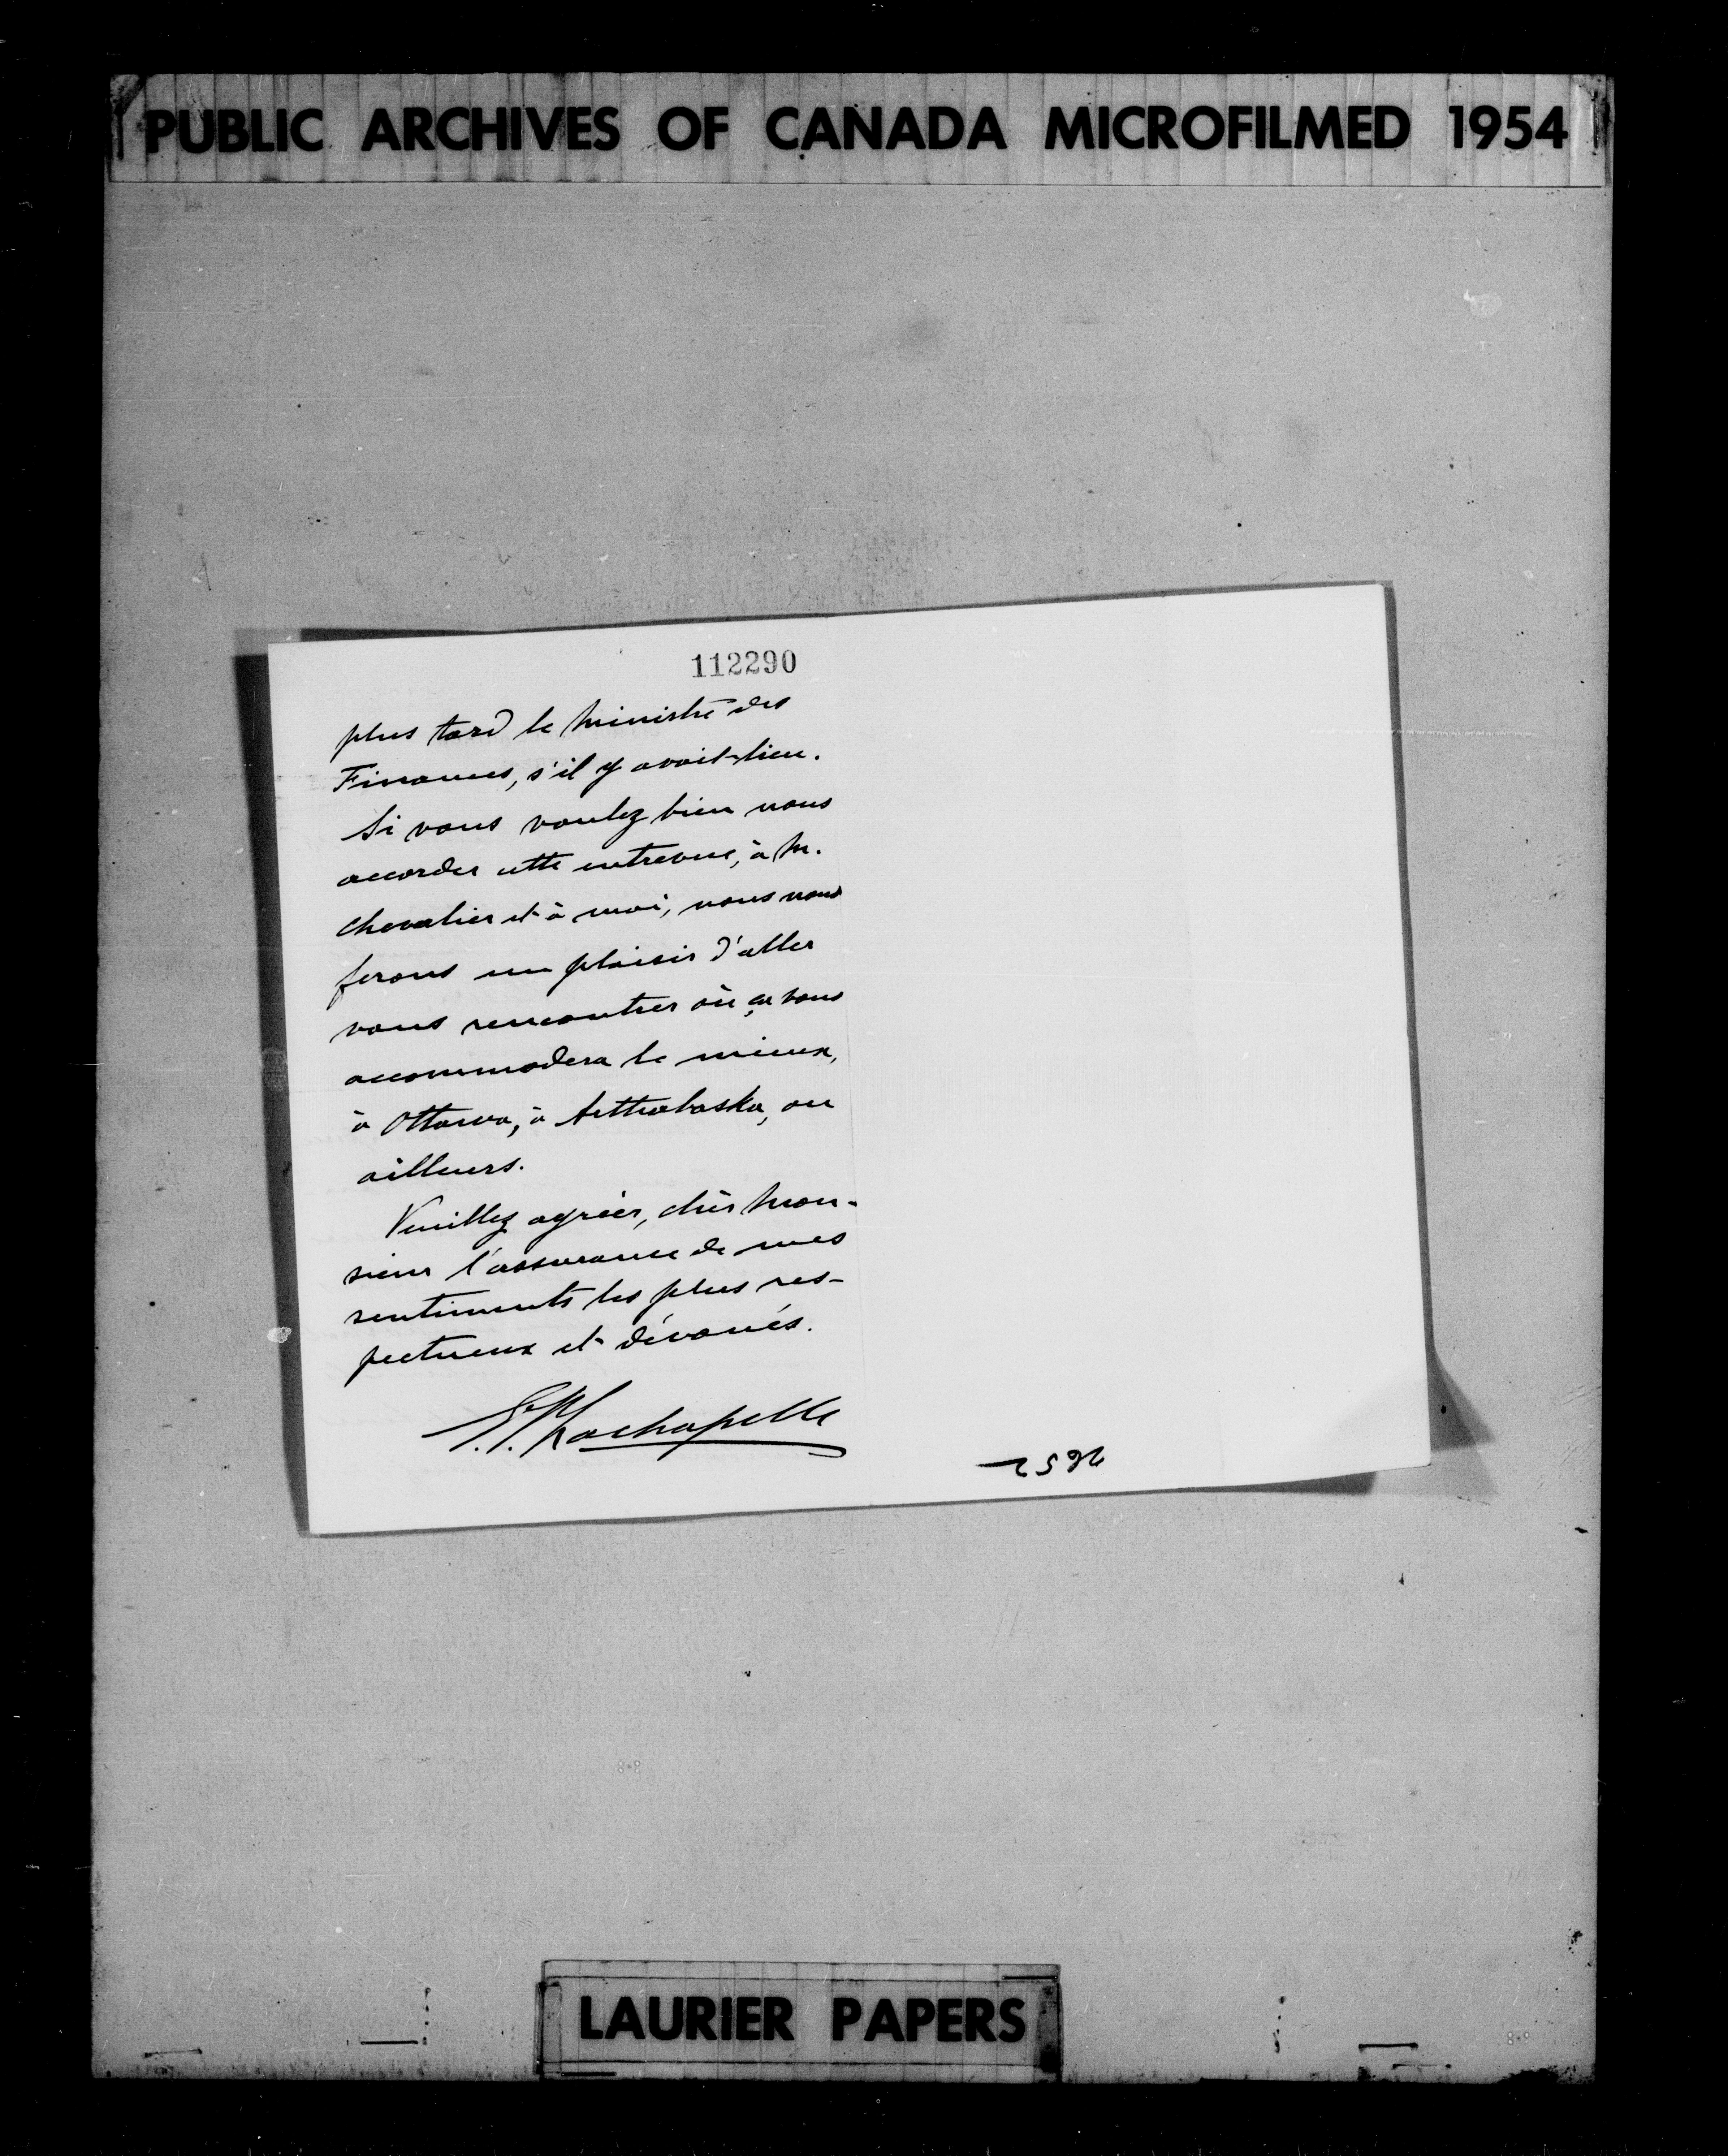 PUBLIC ARCHIVES OF CANADA MICROFILMED 1954
112290
plus tard le Ministre des
Finances, s'il y avait lieu.
Si vous voulez bien nous
accorder cette entrevue, à M.
Chevalier et à moi, nous nous
ferons un plaisir d'aller
vous rencontrer où ça vous
accommodera le mieux,
à Ottawa, à Arthabaska, ou
ailleurs.
Veuillez agréer, cher Mon-
sieur l'assurance de mes
sentiments les plus res-
pectueux et dévoués.
Lachapelle
LAURIER PAPERS